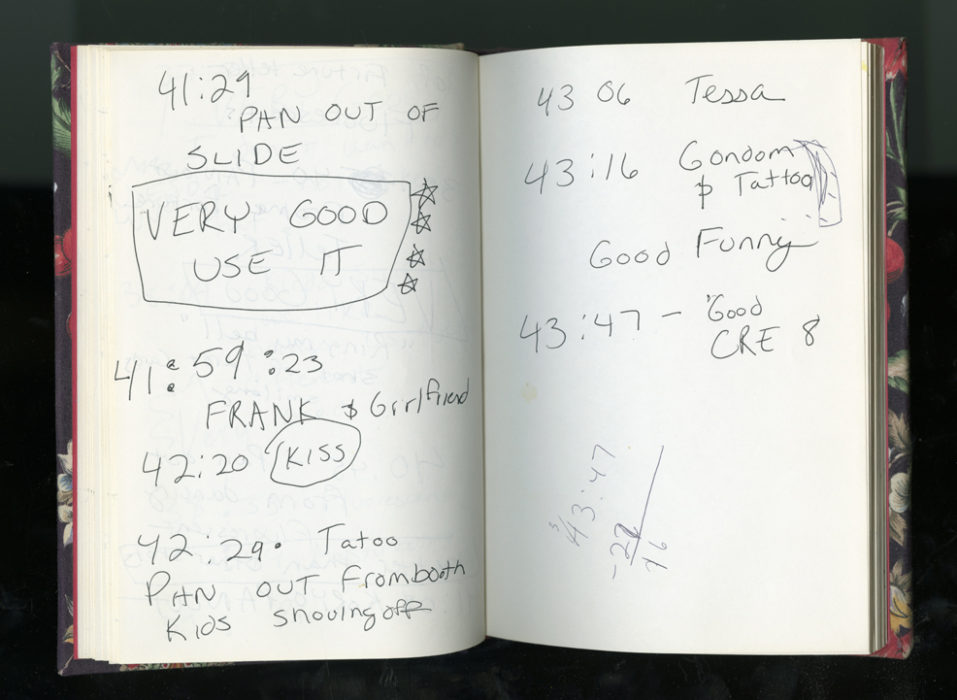 41:29
PAN OUT OF
SLIDE
VERY GOOD
USE IT
41:59:23
FRANK & Girlfriend
42:20 KISS
42:29. Tatoo
PAN OUT From booth
Kids showing off
43 06 Tessa
43:16 Gondom
& Tattoo
Good Funny
43:47 - Good
CRE 8
43:47
16